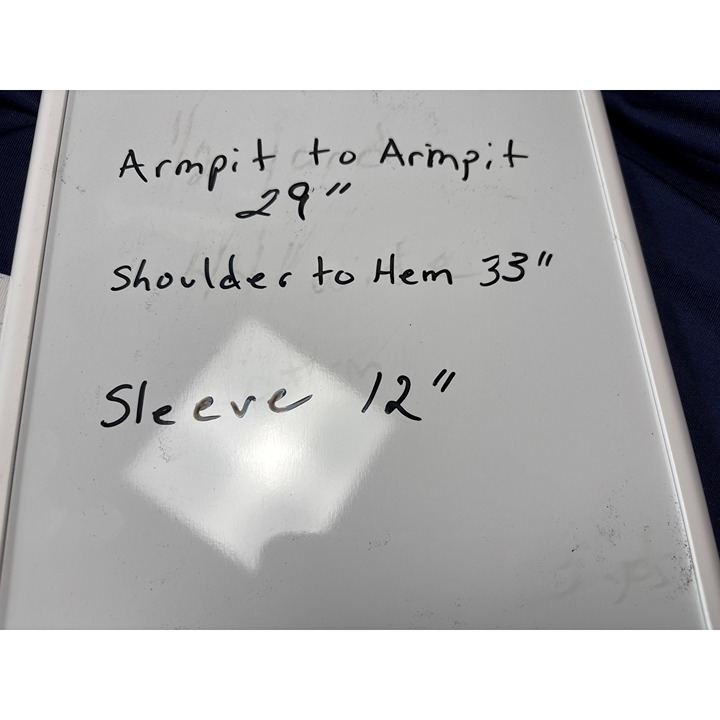 Armpit to Armpit
29"
Shoulder to Hem 33"
Sleeve 12"